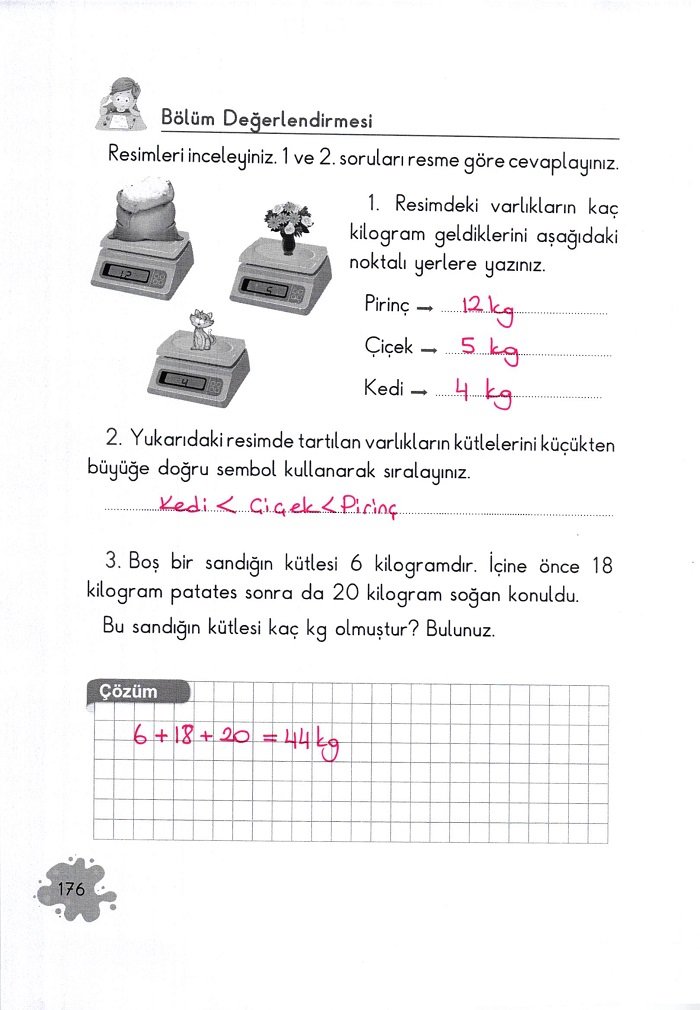 Bölüm Değerlendirmesi
Resimleri inceleyiniz. 1 ve 2. soruları resme göre cevaplayınız.
12
5
4
1. Resimdeki varlıkların kaç
kilogram geldiklerini aşağıdaki
noktalı yerlere yazınız.
Pirinç → 12 kg
Çiçek → 5 kg
Kedi → 4 kg
2. Yukarıdaki resimde tartılan varlıkların kütlelerini küçükten
büyüğe doğru sembol kullanarak sıralayınız.
Kedi < Çiçek < Pirinç
3. Boş bir sandığın kütlesi 6 kilogramdır. İçine önce 18
kilogram patates sonra da 20 kilogram soğan konuldu.
Bu sandığın kütlesi kaç kg olmuştur? Bulunuz.
Çözüm
6 + 18 + 20 = 44 kg
176